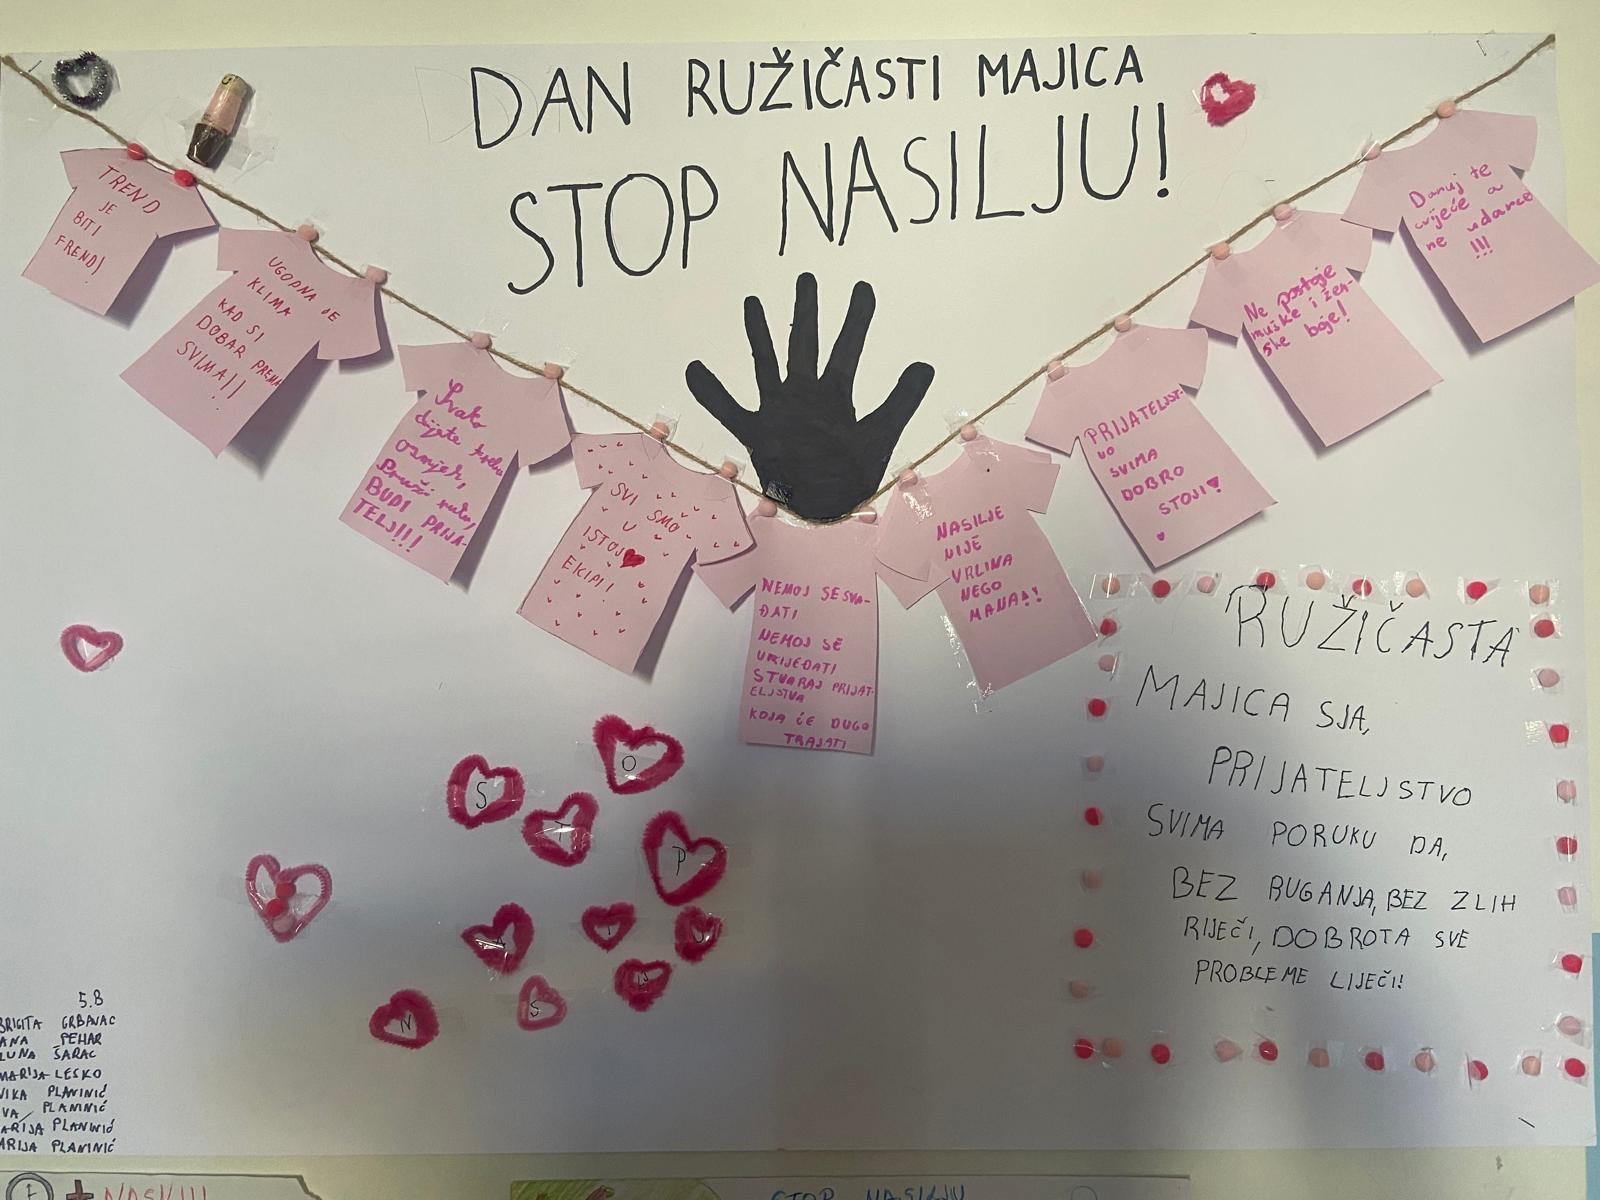 DAN RUŽIČASTI MAJICA
STOP NASILJU!
TREND
JE
BITI
FREND!
UGODNA JE
KLIMA
KAD SI
DOBAR PREMA
SVIMA!!
Svako
dijete treba
osmjeh,
Pruži ruku,
BUDI PRIJA-
TELJ!!!
SVI SMO
U
ISTOJ
EKIPI!
NEMOJ SE SVA-
ĐATI
NEMOJ SE
VRIJEĐATI
STVARAJ PRIJAT-
ELJSTVA
KOJA ĆE DUGO
TRAJATI
NASILJE
NIJE
VRLINA
NEGO
MANA!!
PRIJATELJST-
VO
SVIMA
DOBRO
STOJI!
Ne postoje
muške i žen-
ske boje!
Daruj te
cvijeće a
ne udarce
!!!
RUŽIČASTA
MAJICA SJA,
PRIJATELJSTVO
SVIMA PORUKU DA,
BEZ RUGANJA, BEZ ZLIH
RIJEČI, DOBROTA SVE
PROBLEME LIJEČI!
S T O P
N A S I LJ U
5.B
BRIGITA GRBAVAC
ANA PEHAR
LUNA ŠARAC
MARIJA LESKO
VIKA PLANINIĆ
VA PLANINIĆ
ARIJA PLANINIĆ
ARIJA PLANINIĆ
STOP NASILJU